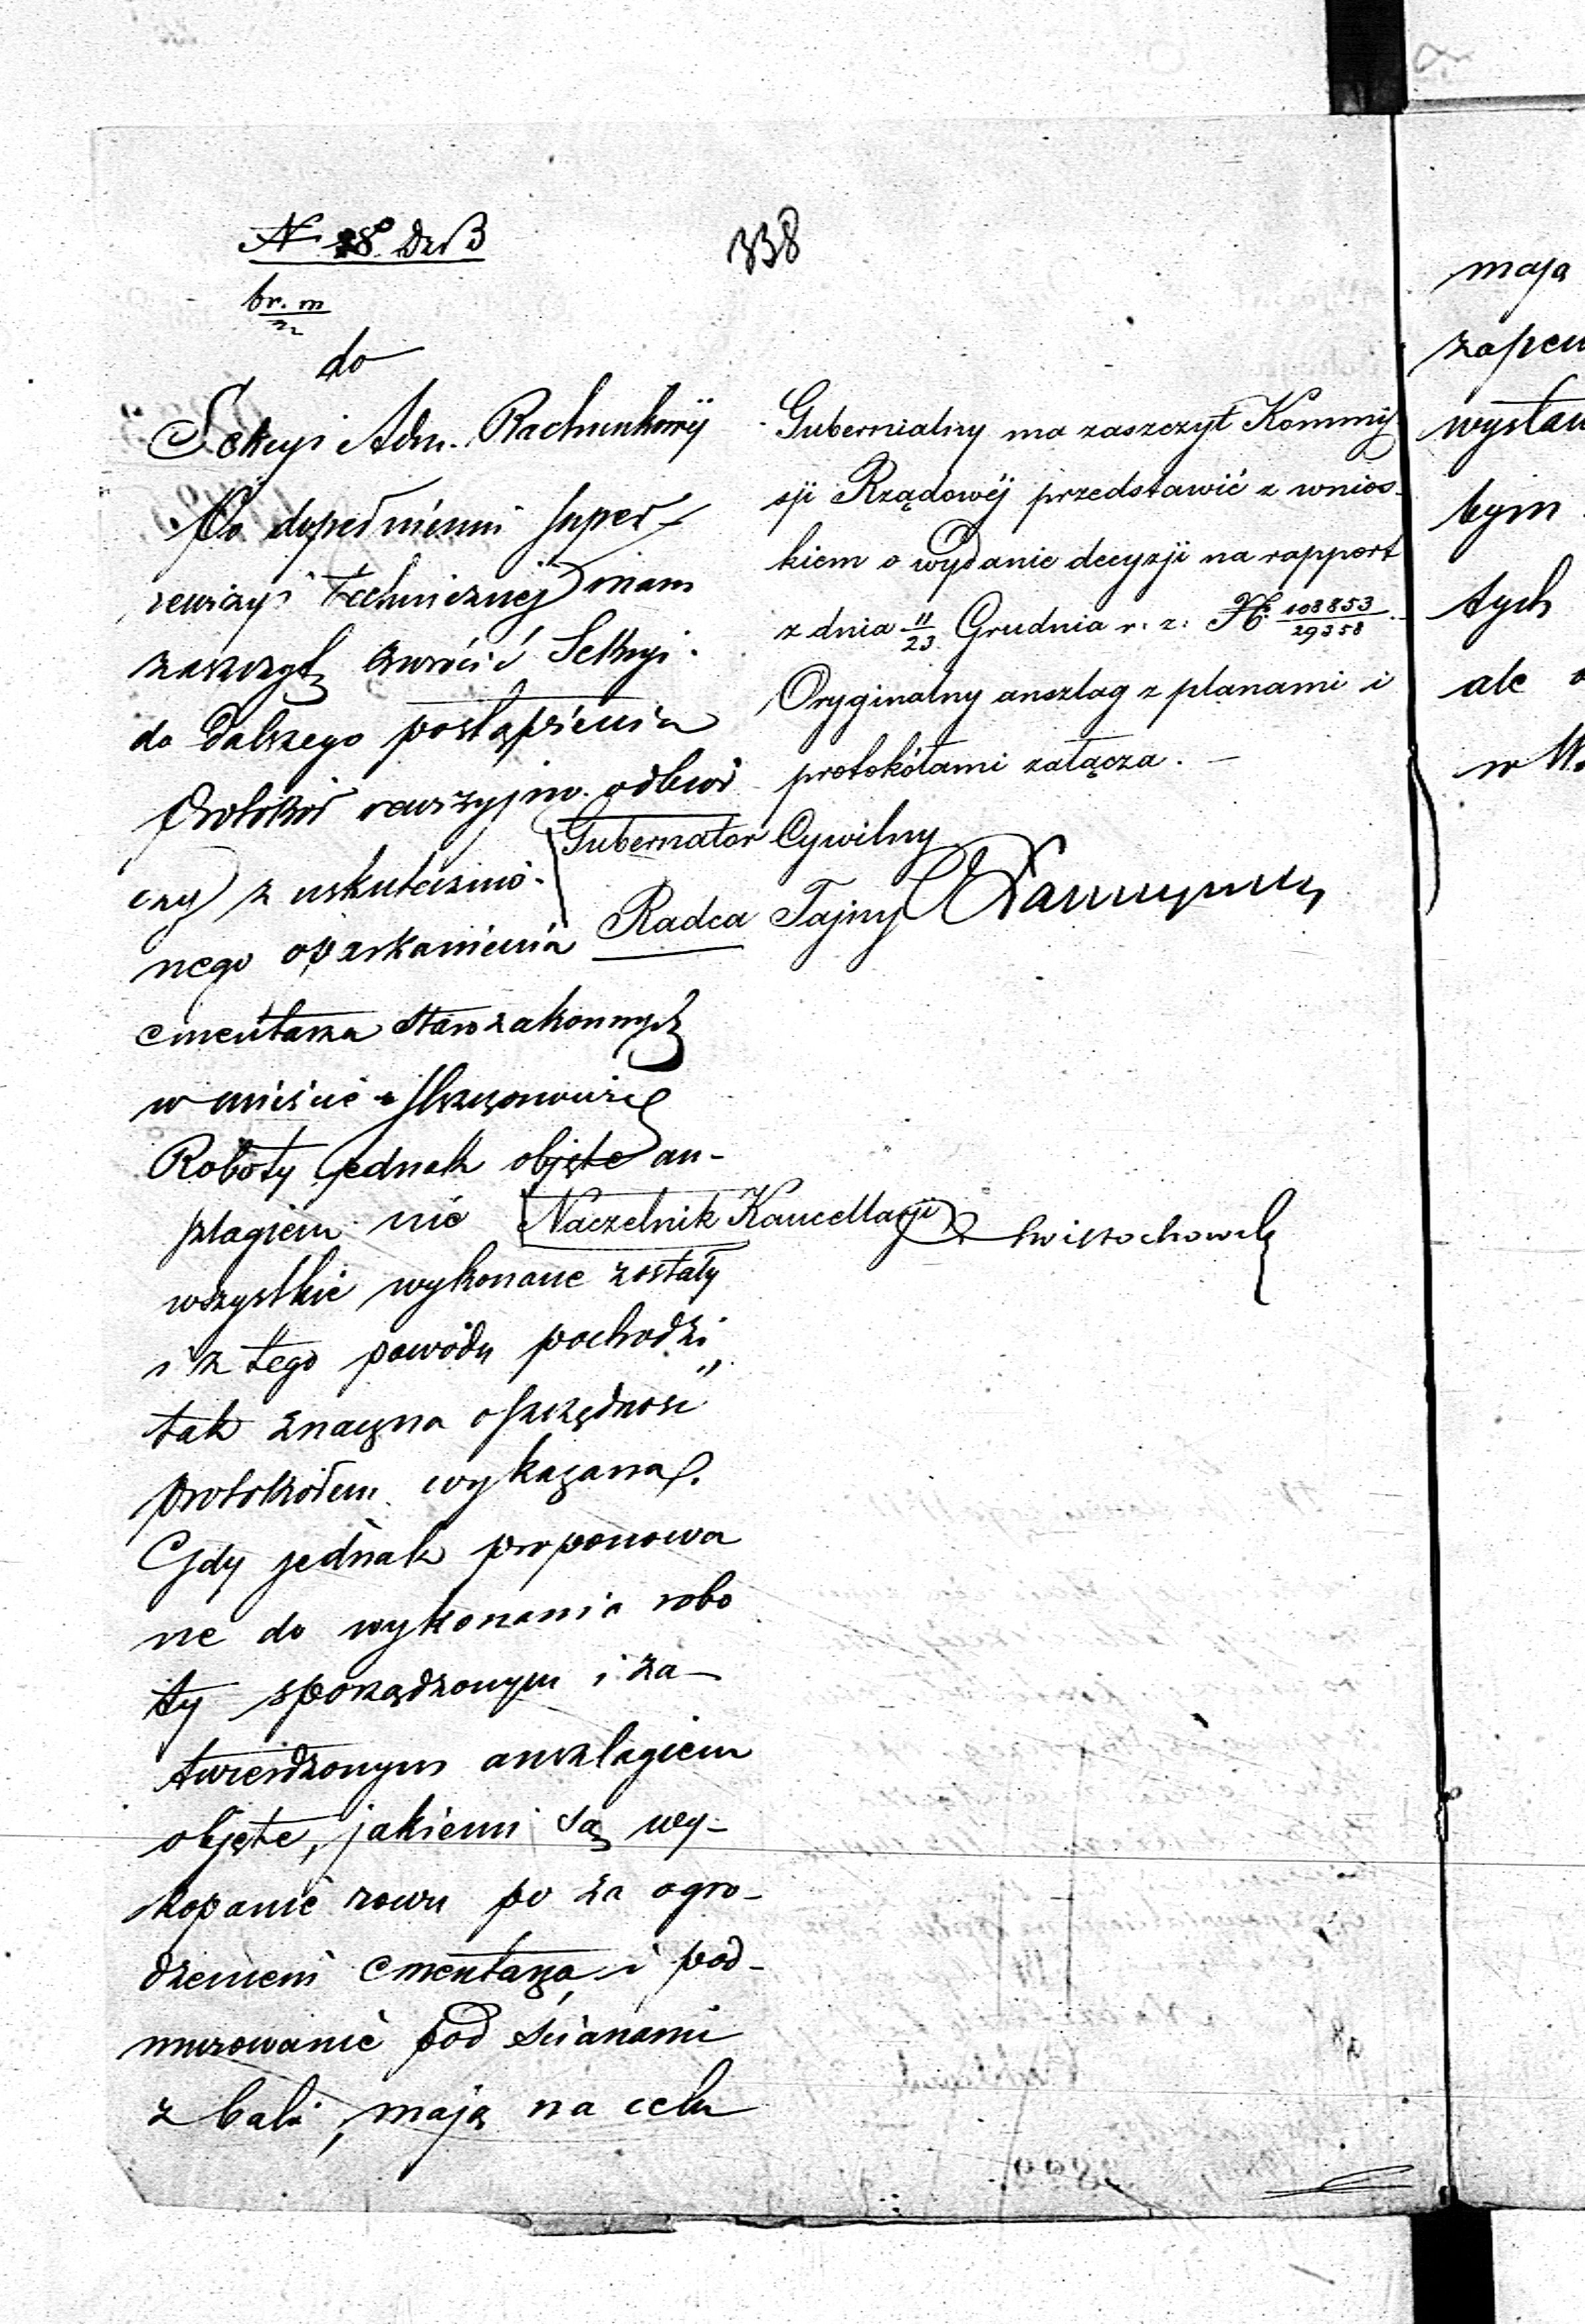 N 28 Dz B
338
br. m
do
Sekcyi Adm. Rachunkowéj
Po dopełnieniu super-
rewizyi technicznéj mam
zaszczyt zwrócić Sekcyi
do dalszego postąpienia
Protokół rewizyjno odbior
czy z uskutecznio-
nego oparkanienia
cmentarza starozakonnych
w mieście
Roboty jednak objęte an-
szlagiem nie
wszystkie wykonane zostały
i z tego powodu pochodzi
tak znaczna oszczędność
protokołem wykazana.
Gdy jednak proponowa
ne do wykonania robo
ty sporządzonym i za-
twierdzonym anszlagiem
objęte, jakiemi są wy-
kopanie rowu po za ogro-
dzeniem cmentarza i pod-
murowanie pod ścianami
z bali, mają na celu
Gubernialny ma zaszczyt Kommis
sji Rządowéj przedstawić z wnios-
kiem o wydanie decyzji na rapport
z dnia 11/23 Grudnia r. z. № 108853/29358.
Oryginalny anszlag z planami i
protokółami załącza. —
Gubernator Cywilny
Radca Tajny
Naczelnik Kancellarji
maja
zapew
wystaw
bym
tych
ale
w